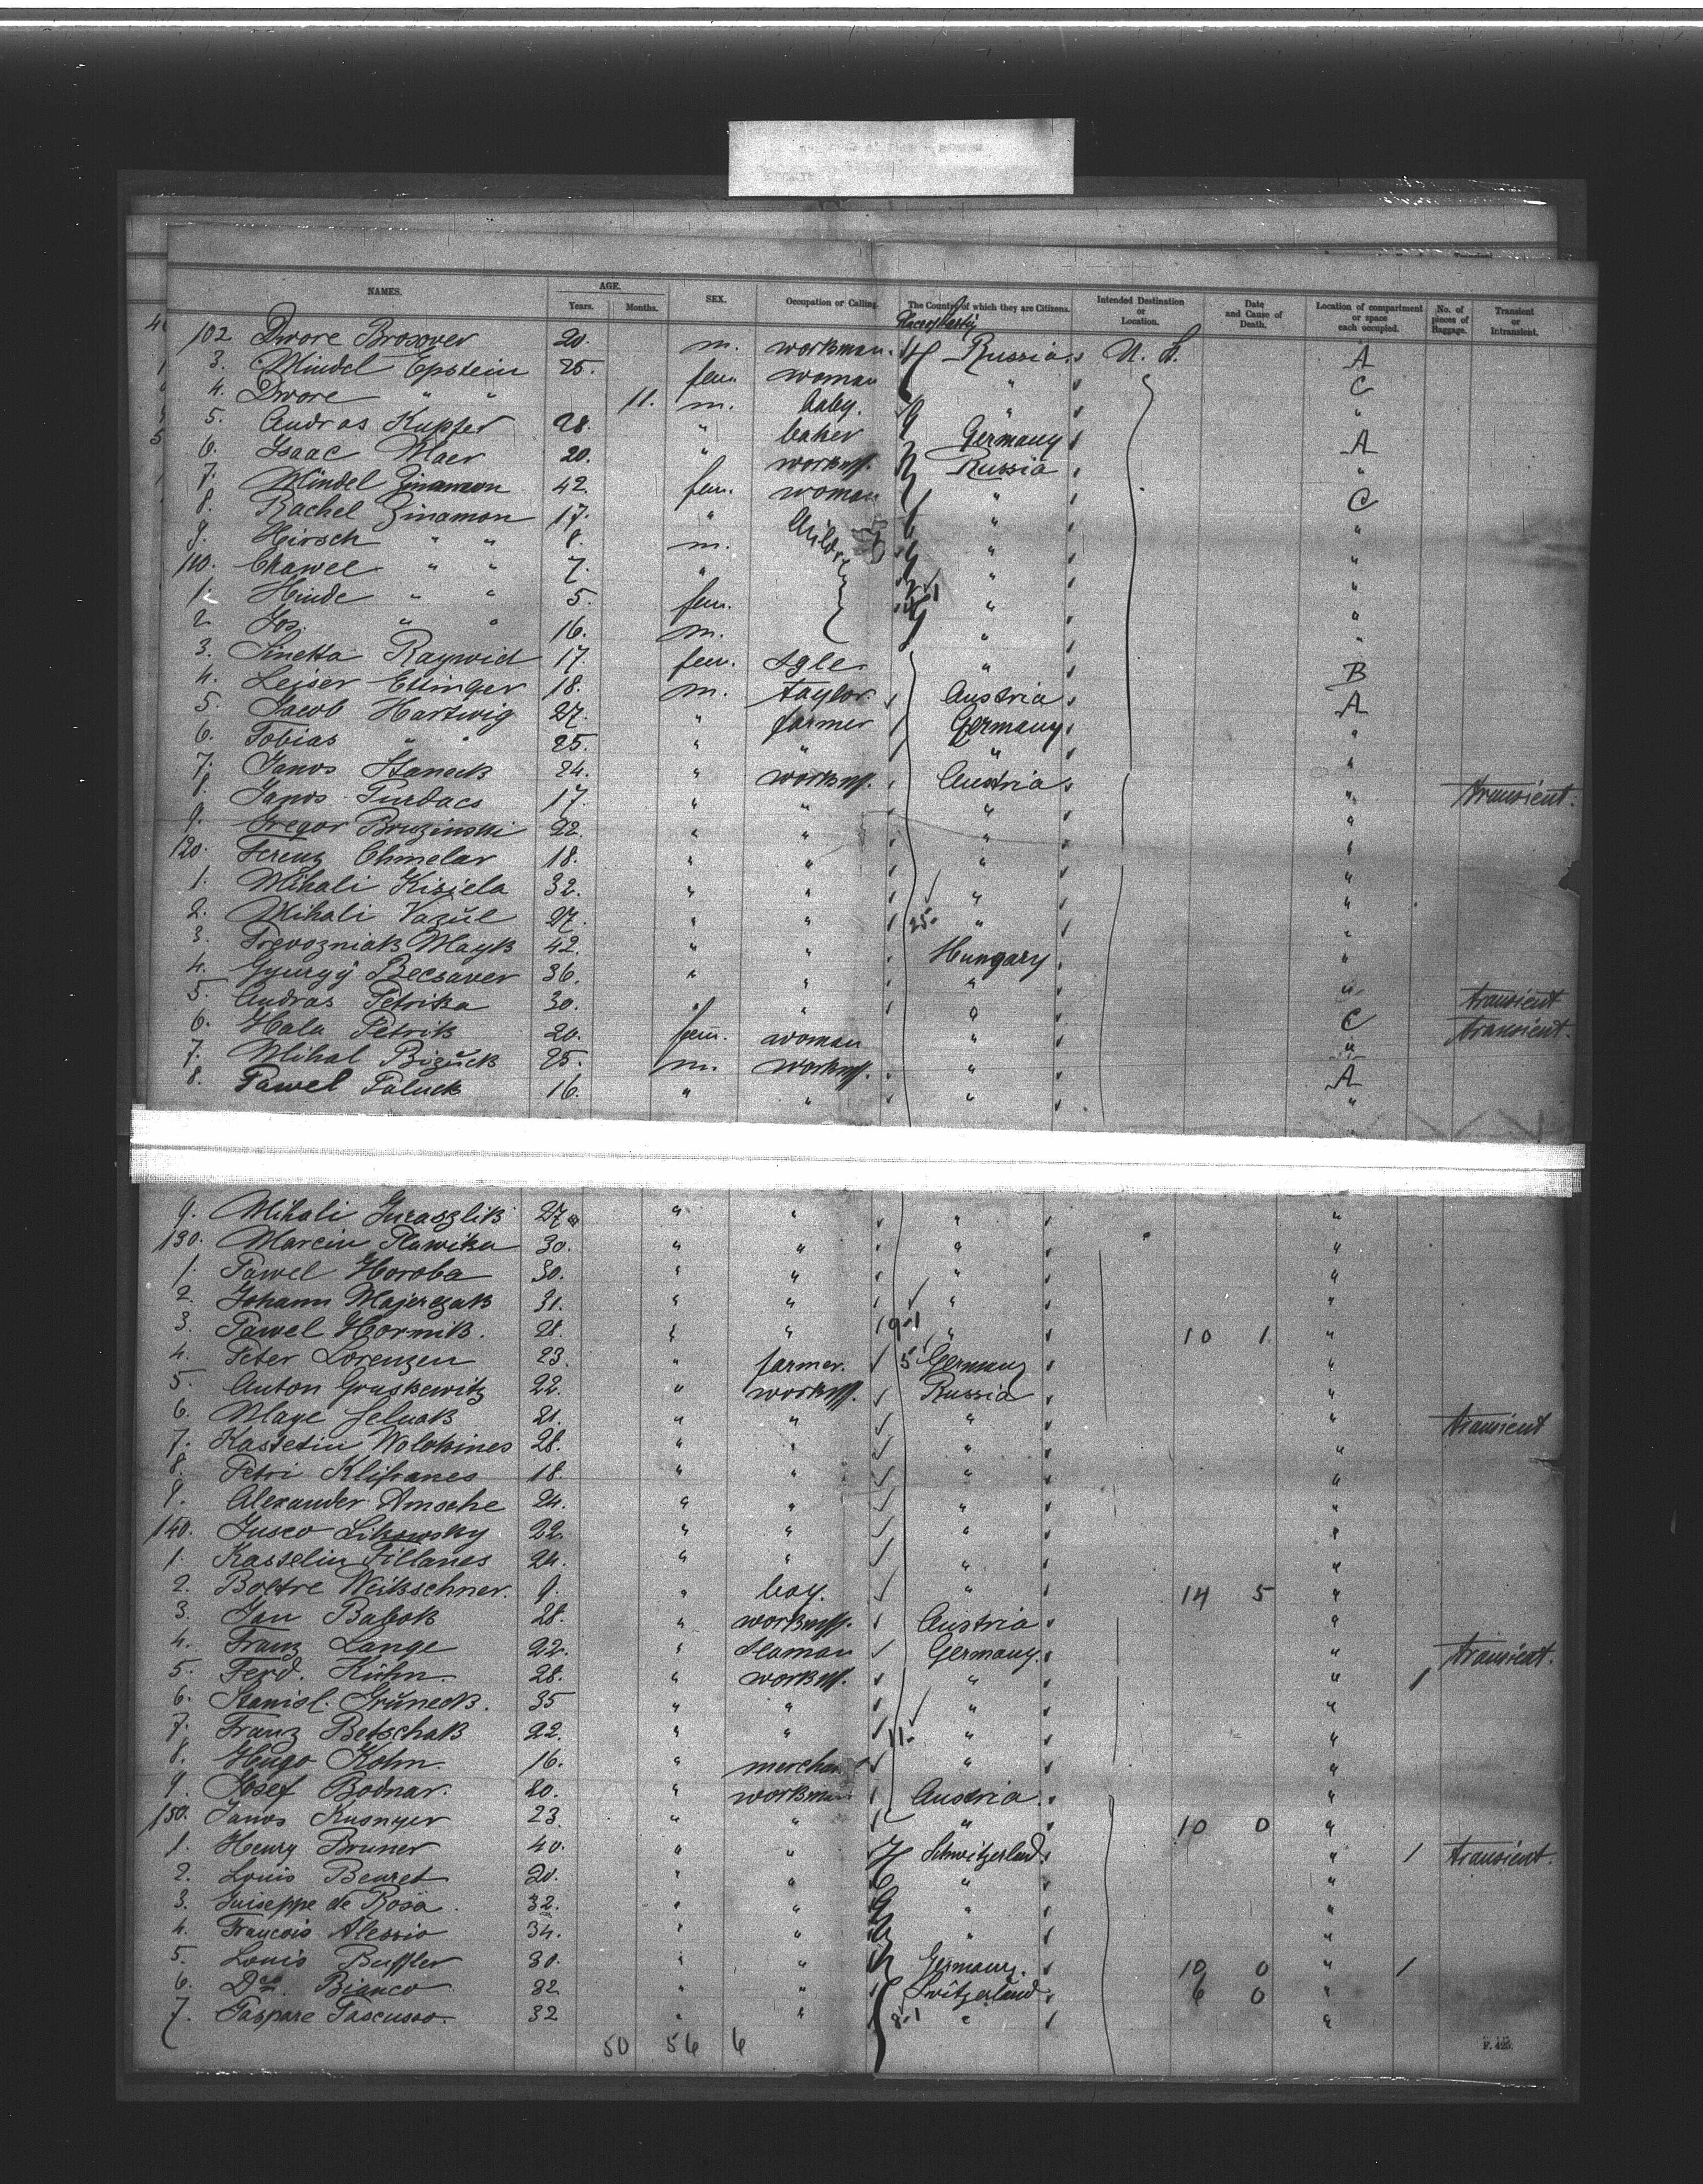 NAMES. AGE. Years. Months. SEX. Occupation or Calling. The Country of which they are Citizens. Intended Destination or Location. Date and Cause of Death. Location of compartment or space each occupied. No. of pieces of Baggage. Transient or Intransient.
102 Dwore Brosover 20. m. workman. Russia. A
3. Mindel Epstein 25. fem. woman " C
4. Dwore " " 11. m. baby. " "
5. Andras Kupfer 28. " baker Germany A
6. Isaac Maer 20. " workm. Russia "
7. Mindel Zinamon 42. fem. woman " C
8. Rachel Zinamon 17. " " "
9. Hirsch " " 8. m. " "
110. Chawel " " 7. " " "
1. Hinde " " 5. fem. " "
2. Jos. " " 16. m. " "
3. Sinetta Raywid 17. fem. sgle. " B
4. Leiser Ettinger 18. m. taylor. Austria A
5. Jacob Hartwig 27. " farmer Germany "
6. Tobias " " 25. " " " "
7. Janos Staneck 24. " workm. Austria " transient.
8. Janos Purdacs 17. " " " "
9. Gregor Bruzinski 22. " " " "
120. Ferenz Chmelar 18. " " " "
1. Mihali Kisiela 32. " " " "
2. Mihali Vazul 27. " " 25. " "
3. Prevozniak Mayk 42. " " Hungary "
4. Gyurgÿ Becsaver 36. " " " "
5. Andras Petrika 30. " " " C transient
6. Hala Petrik 20. fem. woman " " transient.
7. Mihal Bizuck 25. m. workm. " A
8. Pawel Paluck 16. " " " "
9. Mihali Juraszlik 27. " " " "
130. Marcin Plawika 30. " " " "
1. Pawel Horoba 30. " " " "
2. Johann Majerczak 31. " " " "
3. Pawel Hornik. 28. " " " 10 1 "
4. Peter Lorenzen 23. " farmer. 5 Germany "
5. Anton Gruskewitz 22. " workm. Russia "
6. Maye Seluak 21. " " " " transient
7. Kassetin Wolokines 28. " " " "
8. Petri Klifranes 18. " " " "
9. Alexander Amsche 24. " " " "
140. Jusco Sikowsky 22. " " " "
1. Kasselin Fillanes 24. " " " "
2. Boltre Weikschner. 9. " boy. " 14 5 "
3. Jan Babok 28. " workm. Austria "
4. Franz Lange 22. " seaman Germany. " transient.
5. Ferd. Kühn. 28. " workm. " " 1
6. Stanisl. Grüneck. 35 " " " "
7. Franz Betschak 22. " " 11. " "
8. Hugo Kohn. 16. " merchant " "
9. Josef Bodnar. 20. " workman Austria. "
150. Janos Kusnyer 23. " " " 10 0 "
1. Henry Bruner 40. " " Schwitzerland. " 1 transient.
2. Louis Beuret 20. " " " "
3. Guiseppe de Rosa. 32. " " " "
4. Francois Alessio 34. " " " "
5. Louis Buffler 30. " " Germany. 10 0 " 1
6. Dco. Bianco 32 " " Switzerland. 6 0 "
7. Gaspare Pascusso. 32 " " 8-1 " "
50 56 6